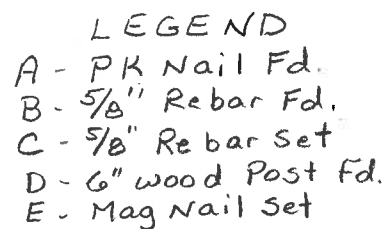 LEGEND
A - PK Nail Fd.
B - 5/8" Rebar Fd.
C - 5/8" Rebar Set
D - 6" wood Post Fd.
E - Mag Nail Set